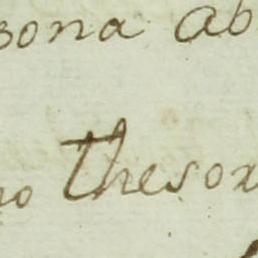 sona ab
no thesor